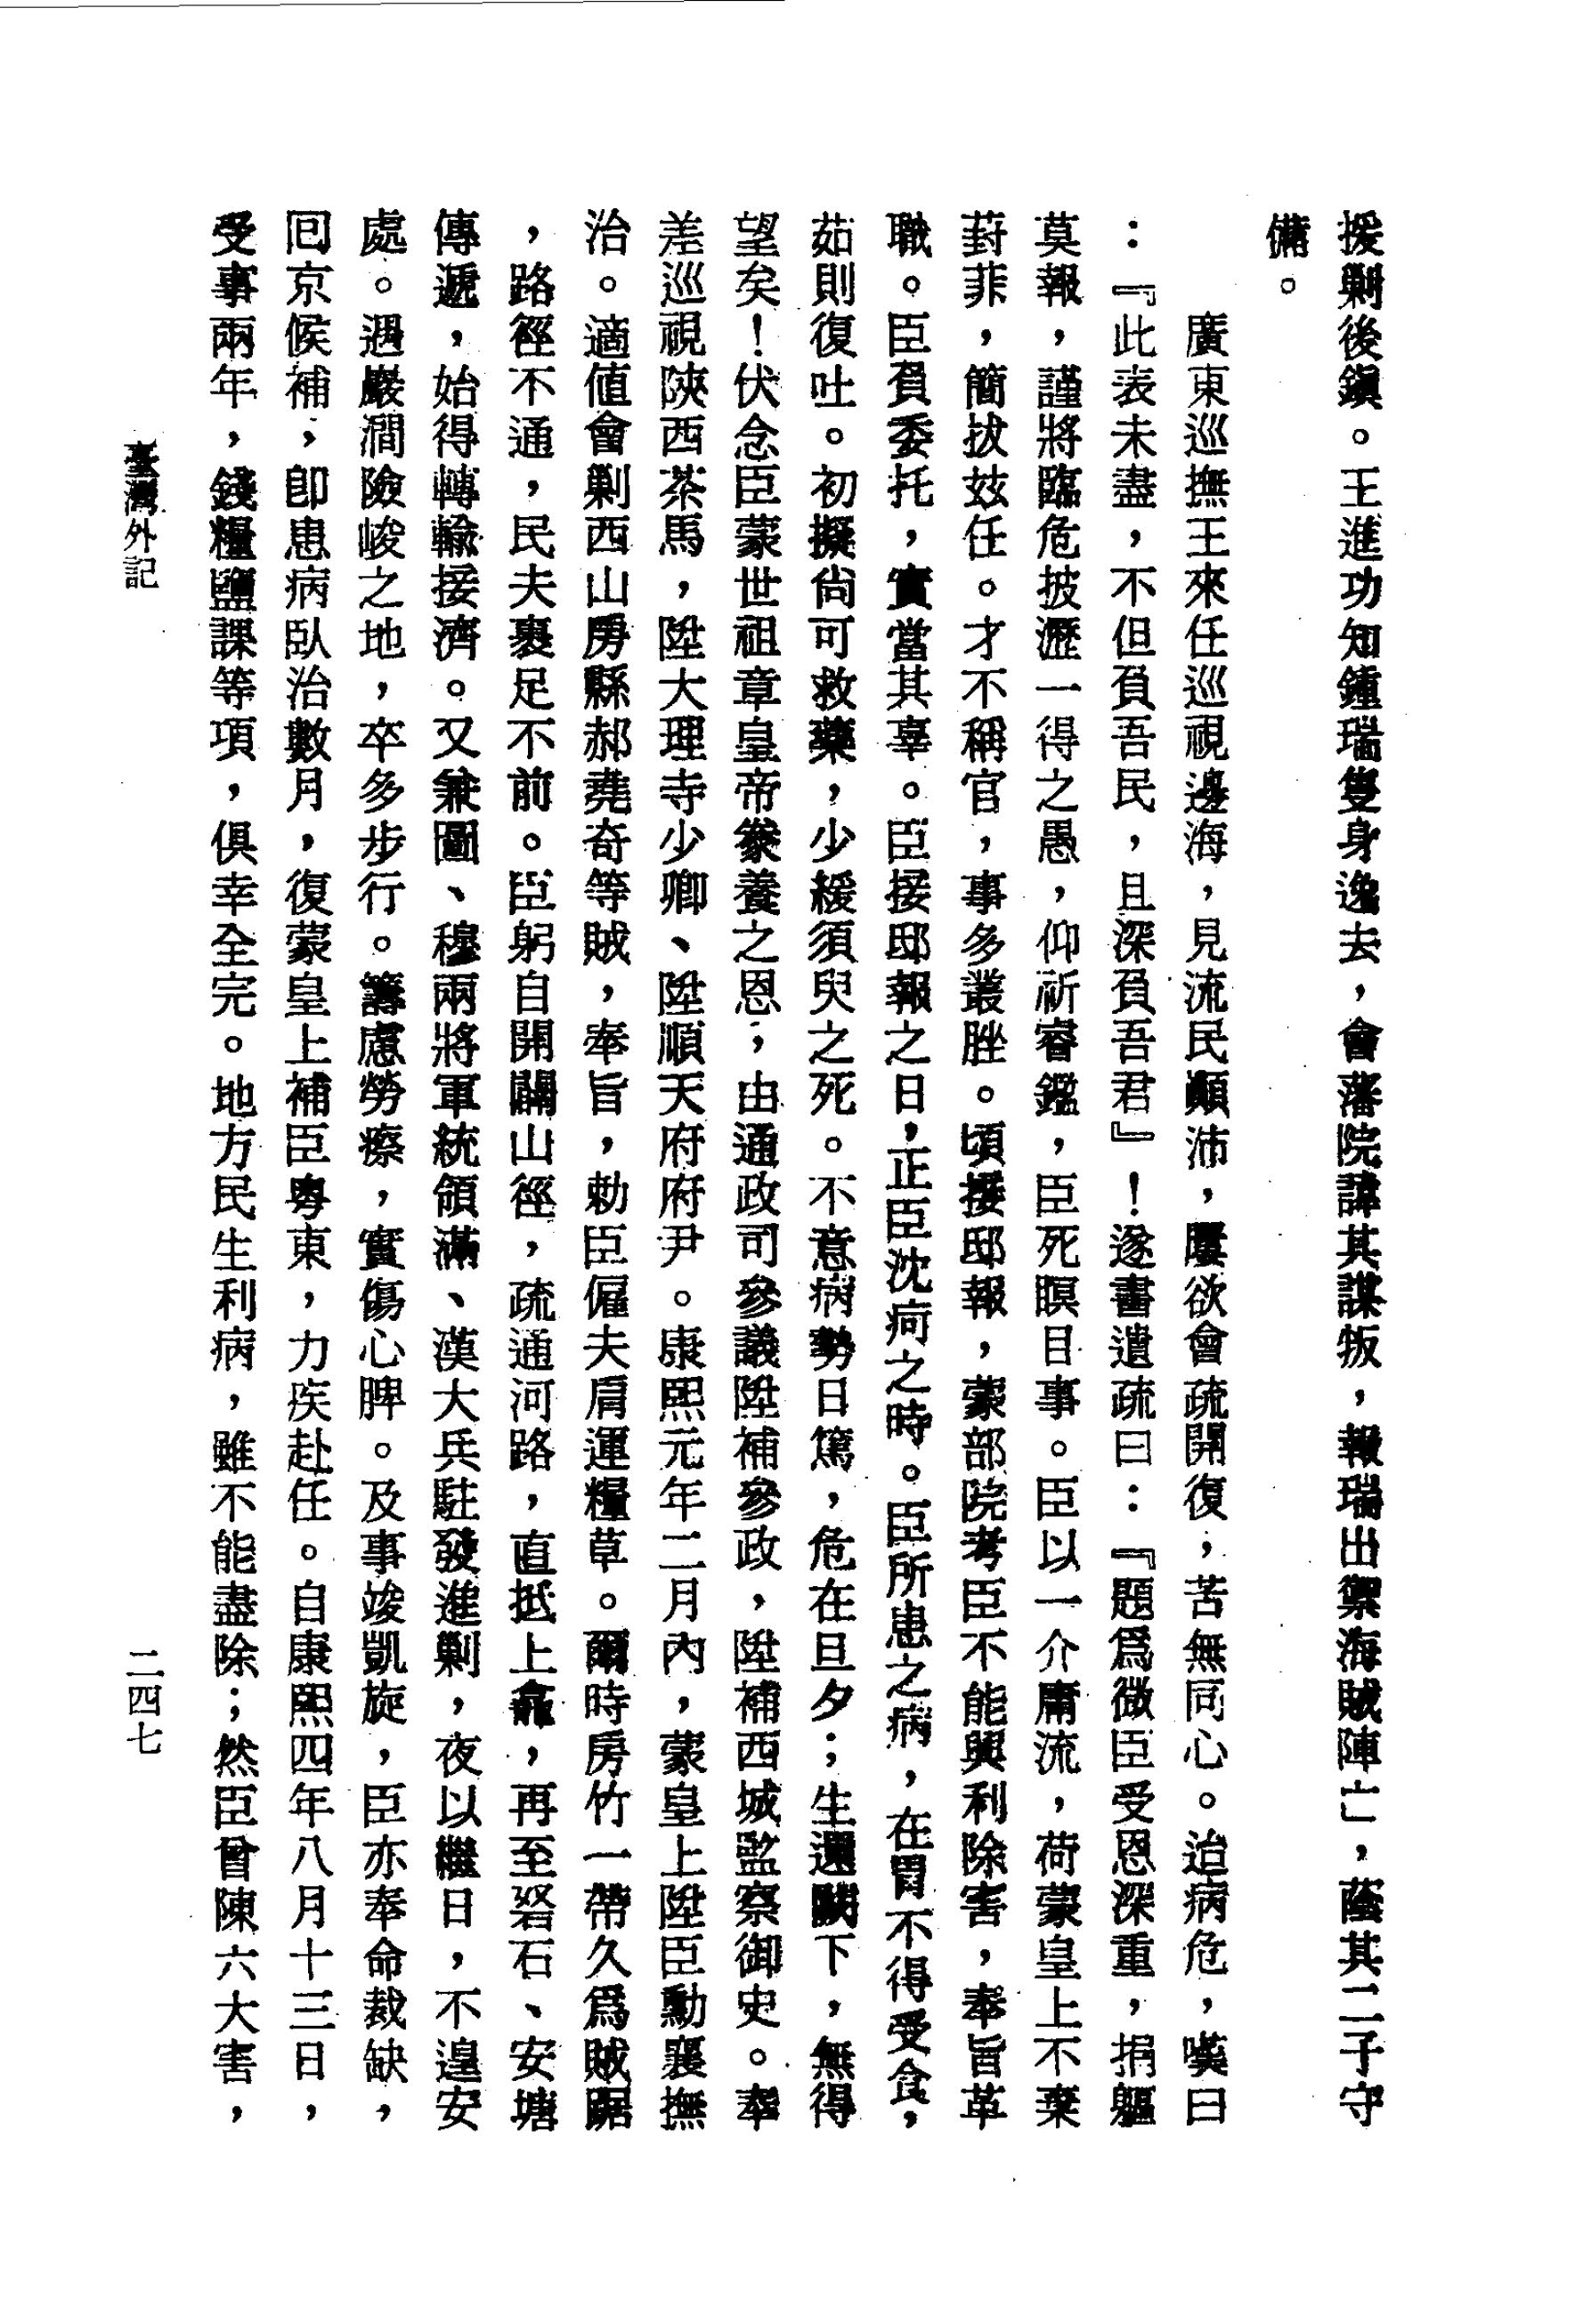 援剿後鎮。王進功知鍾瑞隻身逸去，會藩院諱其謀叛，報瑞出禦海賊陣亡，蔭其二子守
備。
廣東巡撫王來任巡視邊海，見流民顛沛，屢欲會疏開復，苦無同心。治病危，嘆曰
：『此表未盡，不但負吾民，且深負吾君』！遂書遺疏曰：『題爲微臣受恩深重，捐軀
莫報，謹將臨危披瀝一得之愚，仰祈睿鑑，臣死瞑目事。臣以一介庸流，荷蒙皇上不棄
葑菲，簡拔玆任。才不稱官，事多叢脞。頃接邸報，蒙部院考臣不能興利除害，奉旨革
職。臣負委托，實當其辜。臣接邸報之日，正臣沈疴之時。臣所患之病，在胃不得受食，
茹則復吐。初擬尙可救藥，少緩須臾之死。不意病勢日篤，危在旦夕；生還闕下，無得
望矣！伏念臣蒙世祖章皇帝豢養之恩，由通政司參議陞補參政，陞補西城監察御史。奉
差巡視陝西茶馬，陞大理寺少卿、陞順天府府尹。康熙元年二月內，蒙皇上陞臣勳襄撫
治。適値會剿西山房縣郝堯奇等賊，奉旨，勅臣僱夫肩運糧草。爾時房竹一帶久爲賊踞
，路徑不通，民夫裹足不前。臣躬自開闢山徑，疏通河路，直抵上龕，再至砮石、安塘
傳遞，始得轉輸接濟。又兼圖、穆兩將軍統領滿、漢大兵駐發進剿，夜以繼日，不遑安
處。遇巖澗險峻之地，卒多步行。籌慮勞瘵，實傷心脾。及事竣凱旋，臣亦奉命裁缺，
囘京候補，卽患病臥治數月，復蒙皇上補臣粵東，力疾赴任。自康熙四年八月十三日，
受事兩年，錢糧鹽課等項，俱幸全完。地方民生利病，雖不能盡除；然臣曾陳六大害，
臺灣外記
二四七